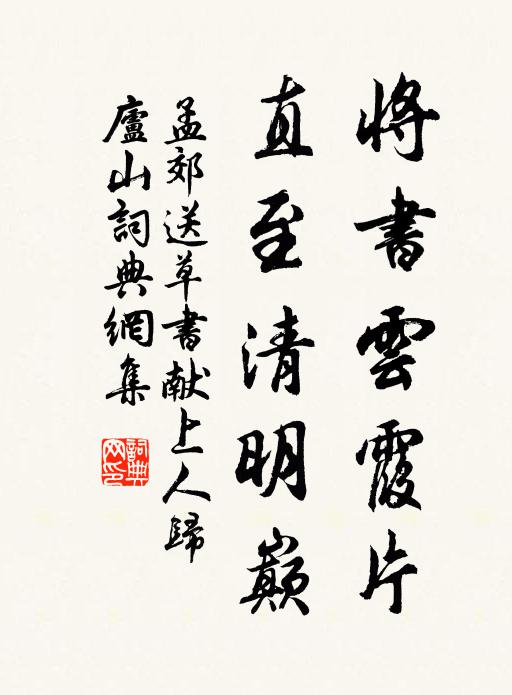 將書雲霞片
直至清明巔
孟郊送草書献上人歸
廬山詞典網集
詞典網印